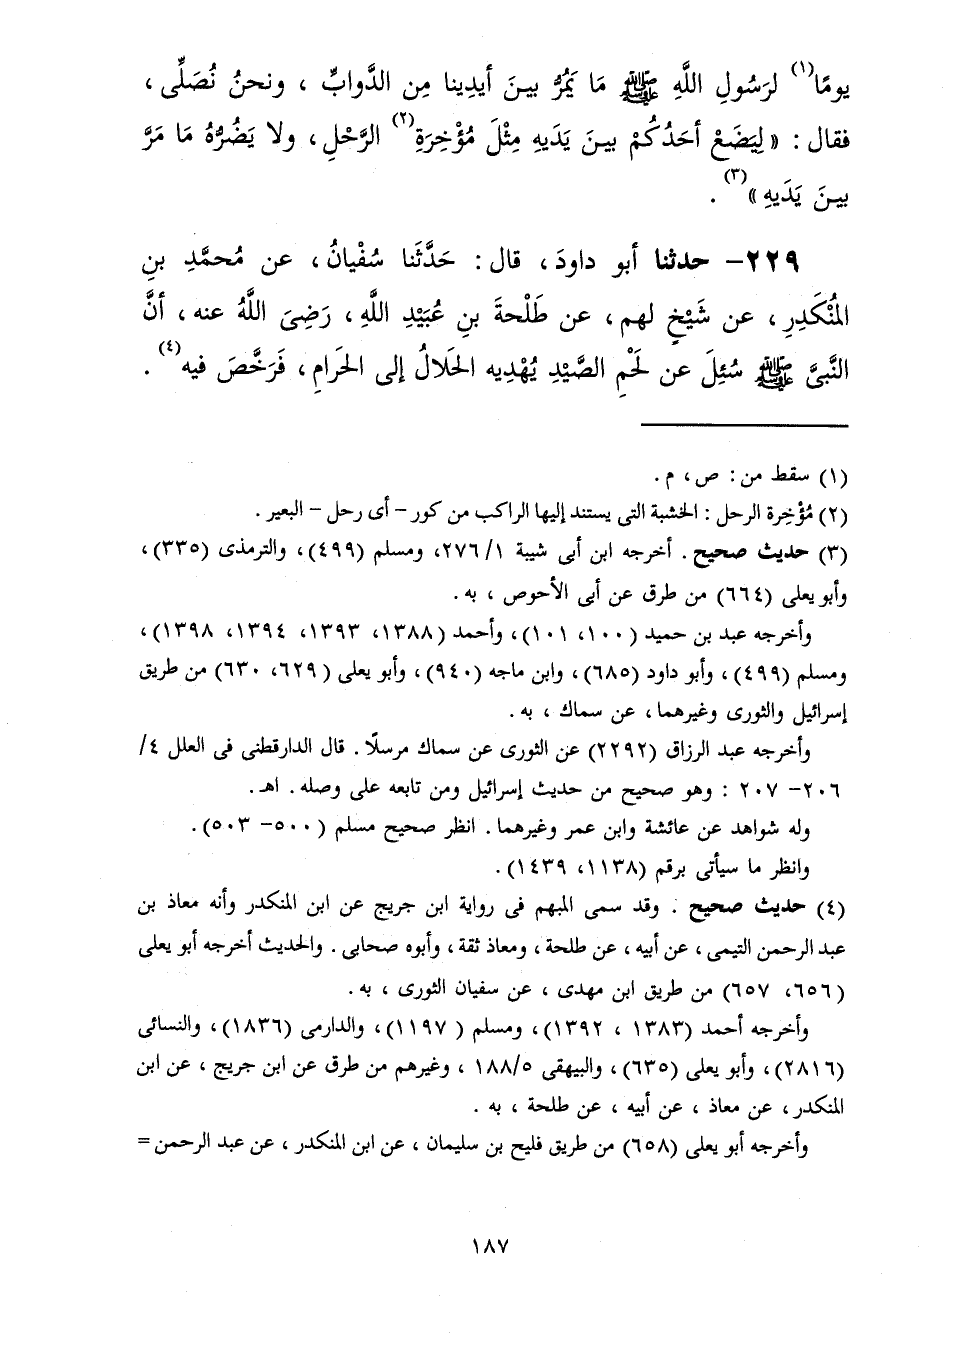 يومًا(١) لرَسُولِ اللَّهِ ﷺ مَا يَمُرُّ بينَ أيدِينا مِن الدَّوابِّ ، ونحنُ نُصَلِّى ،
فقال : « لِيَضَعْ أحَدُكُمْ بينَ يَدَيهِ مِثْلَ مُؤْخِرَةِ(٢) الرَّحْلِ ، ولا يَضُرُّهُ مَا مَرَّ
بينَ يَدَيهِ »(٣) .
٢٢٩- حدثنا أبو داودَ ، قال : حَدَّثَنا سُفْيانُ ، عن مُحمَّدِ بنِ
المُنْكَدِرِ ، عن شَيْخٍ لهم ، عن طَلْحةَ بنِ عُبَيْدِ اللَّهِ ، رَضِىَ اللَّهُ عنه ، أنَّ
النَّبىَّ ﷺ سُئِلَ عن لَحْمِ الصَّيْدِ يُهْدِيه الحَلالُ إلى الحَرامِ ، فَرَخَّصَ فيه(٤) .
(١) سقط من : ص ، م .
(٢) مُؤْخِرة الرحل : الخشبة التى يستند إليها الراكب من كور – أى رحل – البعير .
(٣) حديث صحيح . أخرجه ابن أبى شيبة ١/ ٢٧٦، ومسلم (٤٩٩)، والترمذى (٣٣٥)،
وأبو يعلى (٦٦٤) من طرق عن أبى الأحوص ، به .
وأخرجه عبد بن حميد (١٠٠، ١٠١)، وأحمد (١٣٨٨، ١٣٩٣، ١٣٩٤، ١٣٩٨)،
ومسلم (٤٩٩)، وأبو داود (٦٨٥)، وابن ماجه (٩٤٠)، وأبو يعلى (٦٢٩، ٦٣٠) من طريق
إسرائيل والثورى وغيرهما ، عن سماك ، به .
وأخرجه عبد الرزاق (٢٢٩٢) عن الثورى عن سماك مرسلًا . قال الدارقطنى فى العلل ٤/
٢٠٦- ٢٠٧ : وهو صحيح من حديث إسرائيل ومن تابعه على وصله . اهـ .
وله شواهد عن عائشة وابن عمر وغيرهما . انظر صحيح مسلم (٥٠٠- ٥٠٣).
وانظر ما سيأتى برقم (١١٣٨، ١٤٣٩).
(٤) حديث صحيح . وقد سمى المبهم فى رواية ابن جريج عن ابن المنكدر وأنه معاذ بن
عبد الرحمن التيمى ، عن أبيه ، عن طلحة ، ومعاذ ثقة ، وأبوه صحابى . والحديث أخرجه أبو يعلى
(٦٥٦، ٦٥٧) من طريق ابن مهدى ، عن سفيان الثورى ، به .
وأخرجه أحمد (١٣٨٣ ، ١٣٩٢)، ومسلم ( ١١٩٧)، والدارمى (١٨٣٦)، والنسائى
(٢٨١٦)، وأبو يعلى (٦٣٥)، والبيهقى ٥/ ١٨٨ ، وغيرهم من طرق عن ابن جريج ، عن ابن
المنكدر ، عن معاذ ، عن أبيه ، عن طلحة ، به .
وأخرجه أبو يعلى (٦٥٨) من طريق فليح بن سليمان ، عن ابن المنكدر ، عن عبد الرحمن =
١٨٧